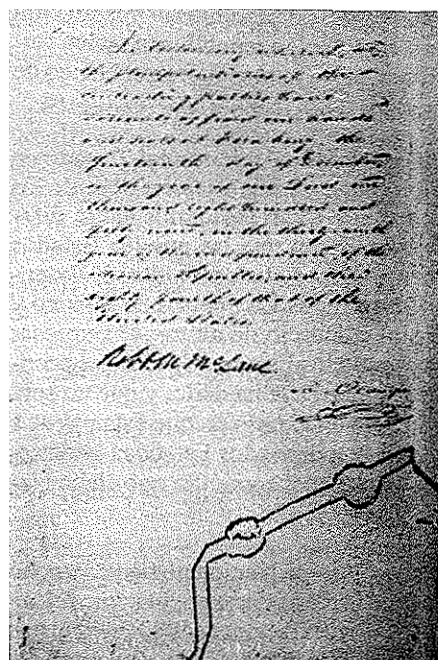 In testimony whereof we
the plenipotentiaries of the
contracting parties have
hereunto affixed our hands
and seals at Vera Cruz the
fourteenth day of December
in the year of our Lord one
thousand eight hundred and
fifty nine in the thirty ninth
year of the independence of the
Mexican Republic and the
eighty fourth of that of the
United States.
Robt. M McLane
Ocampo